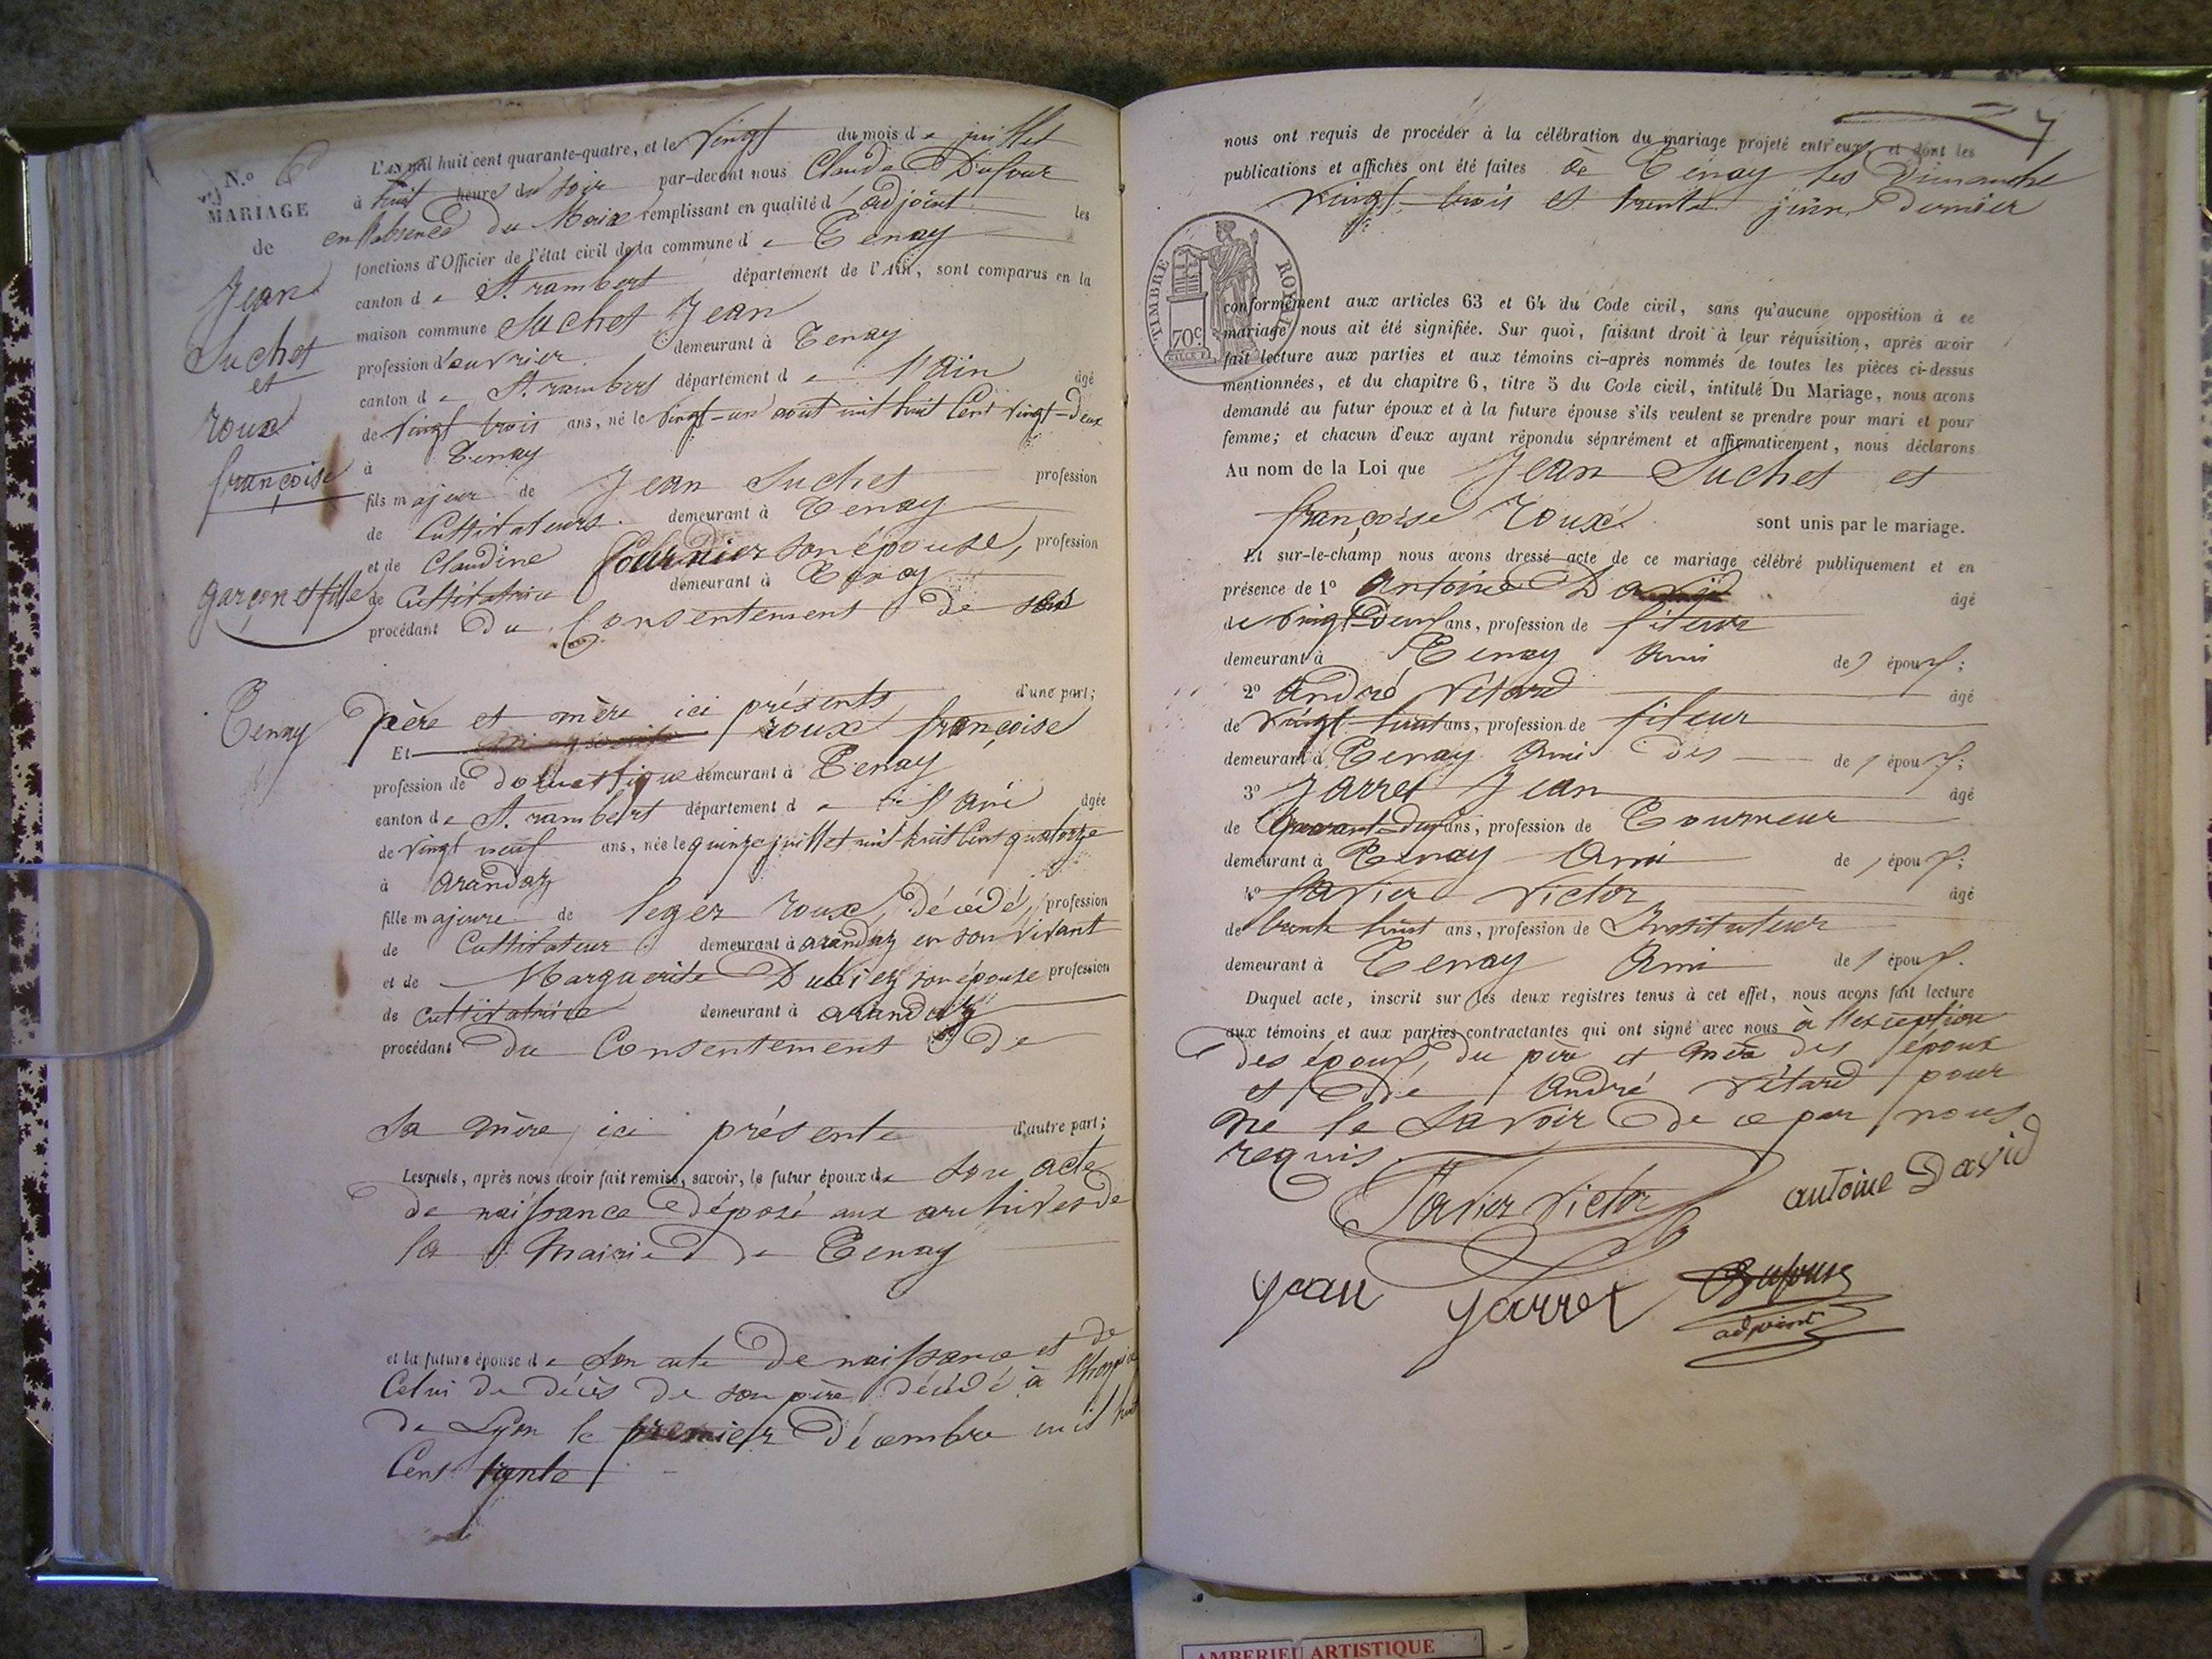 N.º 6
MARIAGE
de
Jean
Suchet
et
roux
françoise
garçon et fille
Tenay
L'an mil huit cent quarante-quatre, et le Vingt du mois de juillet
à huit heure du soir par-devant nous Claude Dufour
en l'absence du Maire remplissant en qualité d'adjoint les
fonctions d'Officier de l'état civil de la commune de Tenay
canton de St. rambert département de l'Ain, sont comparus en la
maison commune Suchet Jean
profession d'ouvrier demeurant à Tenay
canton de St. rambert département de l'Ain âgé
de Vingt trois ans, né le Vingt-un août mil huit Cent Vingt-deux
à Tenay
fils majeur de Jean Suchet profession
de Cultivateurs demeurant à Tenay
et de Claudine fournier son épouse, profession
de Cultivatrice demeurant à Tenay
procédant du Consentement de ses
père et mère ici présents d'une part;
Et roux françoise
profession de Domestique demeurant à Tenay
canton de St. rambert département de l'Ain âgée
de Vingt neuf ans, née le quinze juillet mil huit Cent quatorze
à arandaz
fille majeure de leger roux, Décédé, profession
de Cultivateur demeurant à arandaz en son Vivant
et de Marguerite Dubiez son épouse profession
de Cultivatrice demeurant à arandaz
procédant du Consentement De
Sa mère ici présente d'autre part;
Lesquels, après nous avoir fait remise, savoir, le futur époux de son acte
de naissance Déposé aux archives de
la Mairie de Tenay
et la future épouse de son acte De naissance et de
Celui de décès de son père décédé à l'hospice
de Lyon le premier Décembre mil huit
Cent trente
7
nous ont requis de procéder à la célébration du mariage projeté entr'eux, et dont les
publications et affiches ont été faites à Tenay les Dimanche
Vingt-trois et trente juin Dernier
TIMBRE ROYAL
70c
conformément aux articles 63 et 64 du Code civil, sans qu'aucune opposition à ce
mariage nous ait été signifiée. Sur quoi, faisant droit à leur réquisition, après avoir
fait lecture aux parties et aux témoins ci-après nommés de toutes les pièces ci-dessus
mentionnées, et du chapitre 6, titre 5 du Code civil, intitulé Du Mariage, nous avons
demandé au futur époux et à la future épouse s'ils veulent se prendre pour mari et pour
femme; et chacun d'eux ayant répondu séparément et affirmativement, nous déclarons
Au nom de la Loi que Jean Suchet et
françoise roux sont unis par le mariage.
Et sur-le-champ nous avons dressé acte de ce mariage célébré publiquement et en
présence de 1º Antoine David âgé
de Vingt-Deux ans, profession de fileur
demeurant à Tenay Ami des époux;
2º André Vétard âgé
de Vingt-huit ans, profession de fileur
demeurant à Tenay Ami des de époux;
3º Jarret Jean âgé
de ans, profession de Tourneur
demeurant à Tenay Ami de époux;
4º Savier Victor âgé
de trente huit ans, profession de Instituteur
demeurant à Tenay Ami de époux.
Duquel acte, inscrit sur les deux registres tenus à cet effet, nous avons fait lecture
aux témoins et aux parties contractantes qui ont signé avec nous à l'exception
des époux, du père et mère des époux
et de André Vétard pour
ne le Savoir de ce par nous
requis.
Savier Victor antoine David
jean jarret Dufour
adjoint
AMBERIEU ARTISTIQUE